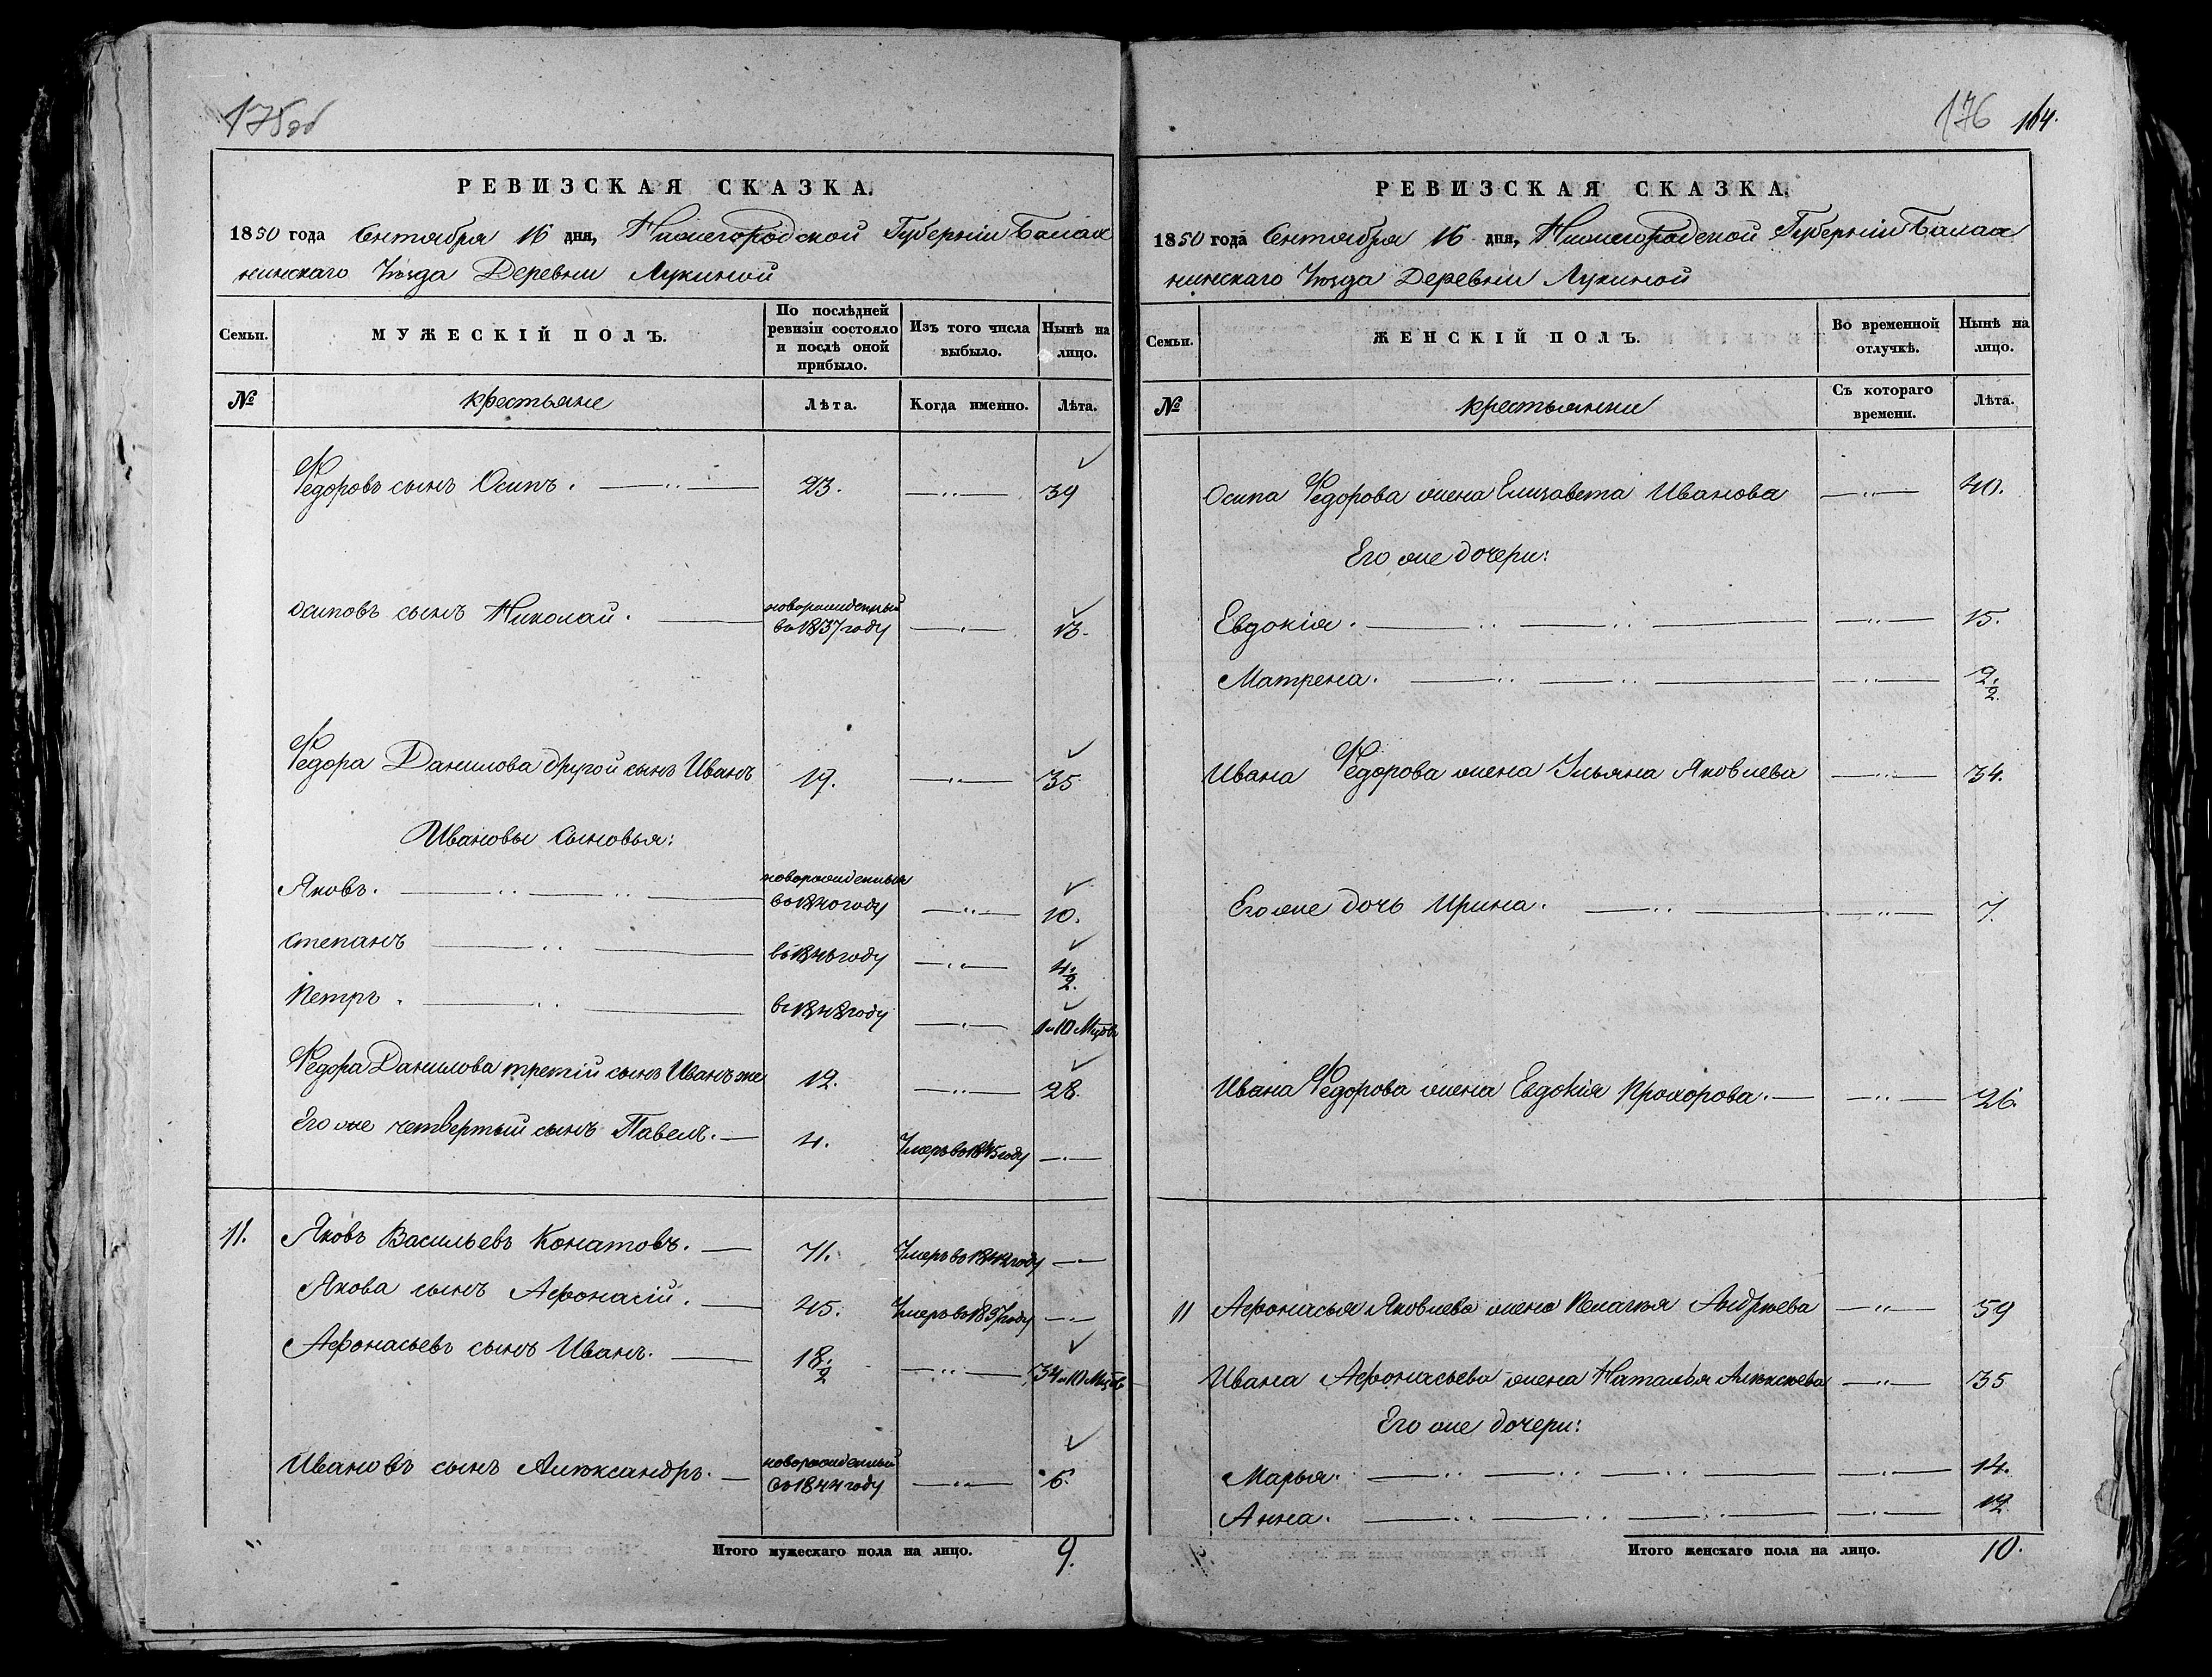 175об
РЕВИЗСКАЯ СКАЗКА.
1850 года Сентября 16 дня, Нижегородской Губерніи Балах
нинскаго Уѣзда Деревни Лукиной
Семьи. МУЖЕСКІЙ ПОЛЪ. По послѣдней ревизіи состояло и послѣ оной прибыло. Изъ того числа выбыло. Нынѣ на лицо.
№ крестьяне Лѣта. Когда именно. Лѣта.
Федоровъ сынъ Осипъ. 23. 39
Осиповъ сынъ Николай. новорожденный во 1837 году 13.
Федора Данилова другой сынъ Иванъ 19. 35
Ивановы Сыновья:
Яковъ. новорожденный во 1840 году 10.
Степанъ во 1846 году 4.½.
Петръ. во 1848 году 1 и 10 Мцовъ
Федора Данилова третій сынъ Иванъ же 12. 28.
Его же четвертый сынъ Павелъ. 4. Умеръ во 1845 году
11. Яковъ Васильевъ Конатовъ. 71. Умеръ во 1842 году
Якова сынъ Афонасій. 45. Умеръ во 1837 году
Афонасьевъ сынъ Иванъ. 18.½ 34 и 10 Мцовъ
Ивановъ сынъ Алѣксандръ. новорожденный во 1844 году 6.
Итого мужескаго пола на лицо. 9.
176 164.
РЕВИЗСКАЯ СКАЗКА.
1850 года Сентября 16 дня, Нижегородской Губерніи Балах
нинскаго Уѣзда Деревни Лукиной
Семьи. ЖЕНСКІЙ ПОЛЪ. Во временной отлучкѣ. Нынѣ на лицо.
№ крестьянки Съ котораго времени. Лѣта.
Осипа Федорова жена Елизавета Иванова 40.
Его же дочери:
Евдокія. 15.
Матрена. 2.½.
Ивана Федорова жена Ульяна Яковлева 34.
Его же дочь Ирина. 7.
Ивана Федорова жена Евдокія Прохорова. 26.
11 Афонасья Яковлева жена Пелагѣя Андрѣева 59
Ивана Афонасьева жена Наталья Алѣксѣева 35
Его же дочери:
Марья. 14.
Анна. 12
Итого женскаго пола на лицо. 10.